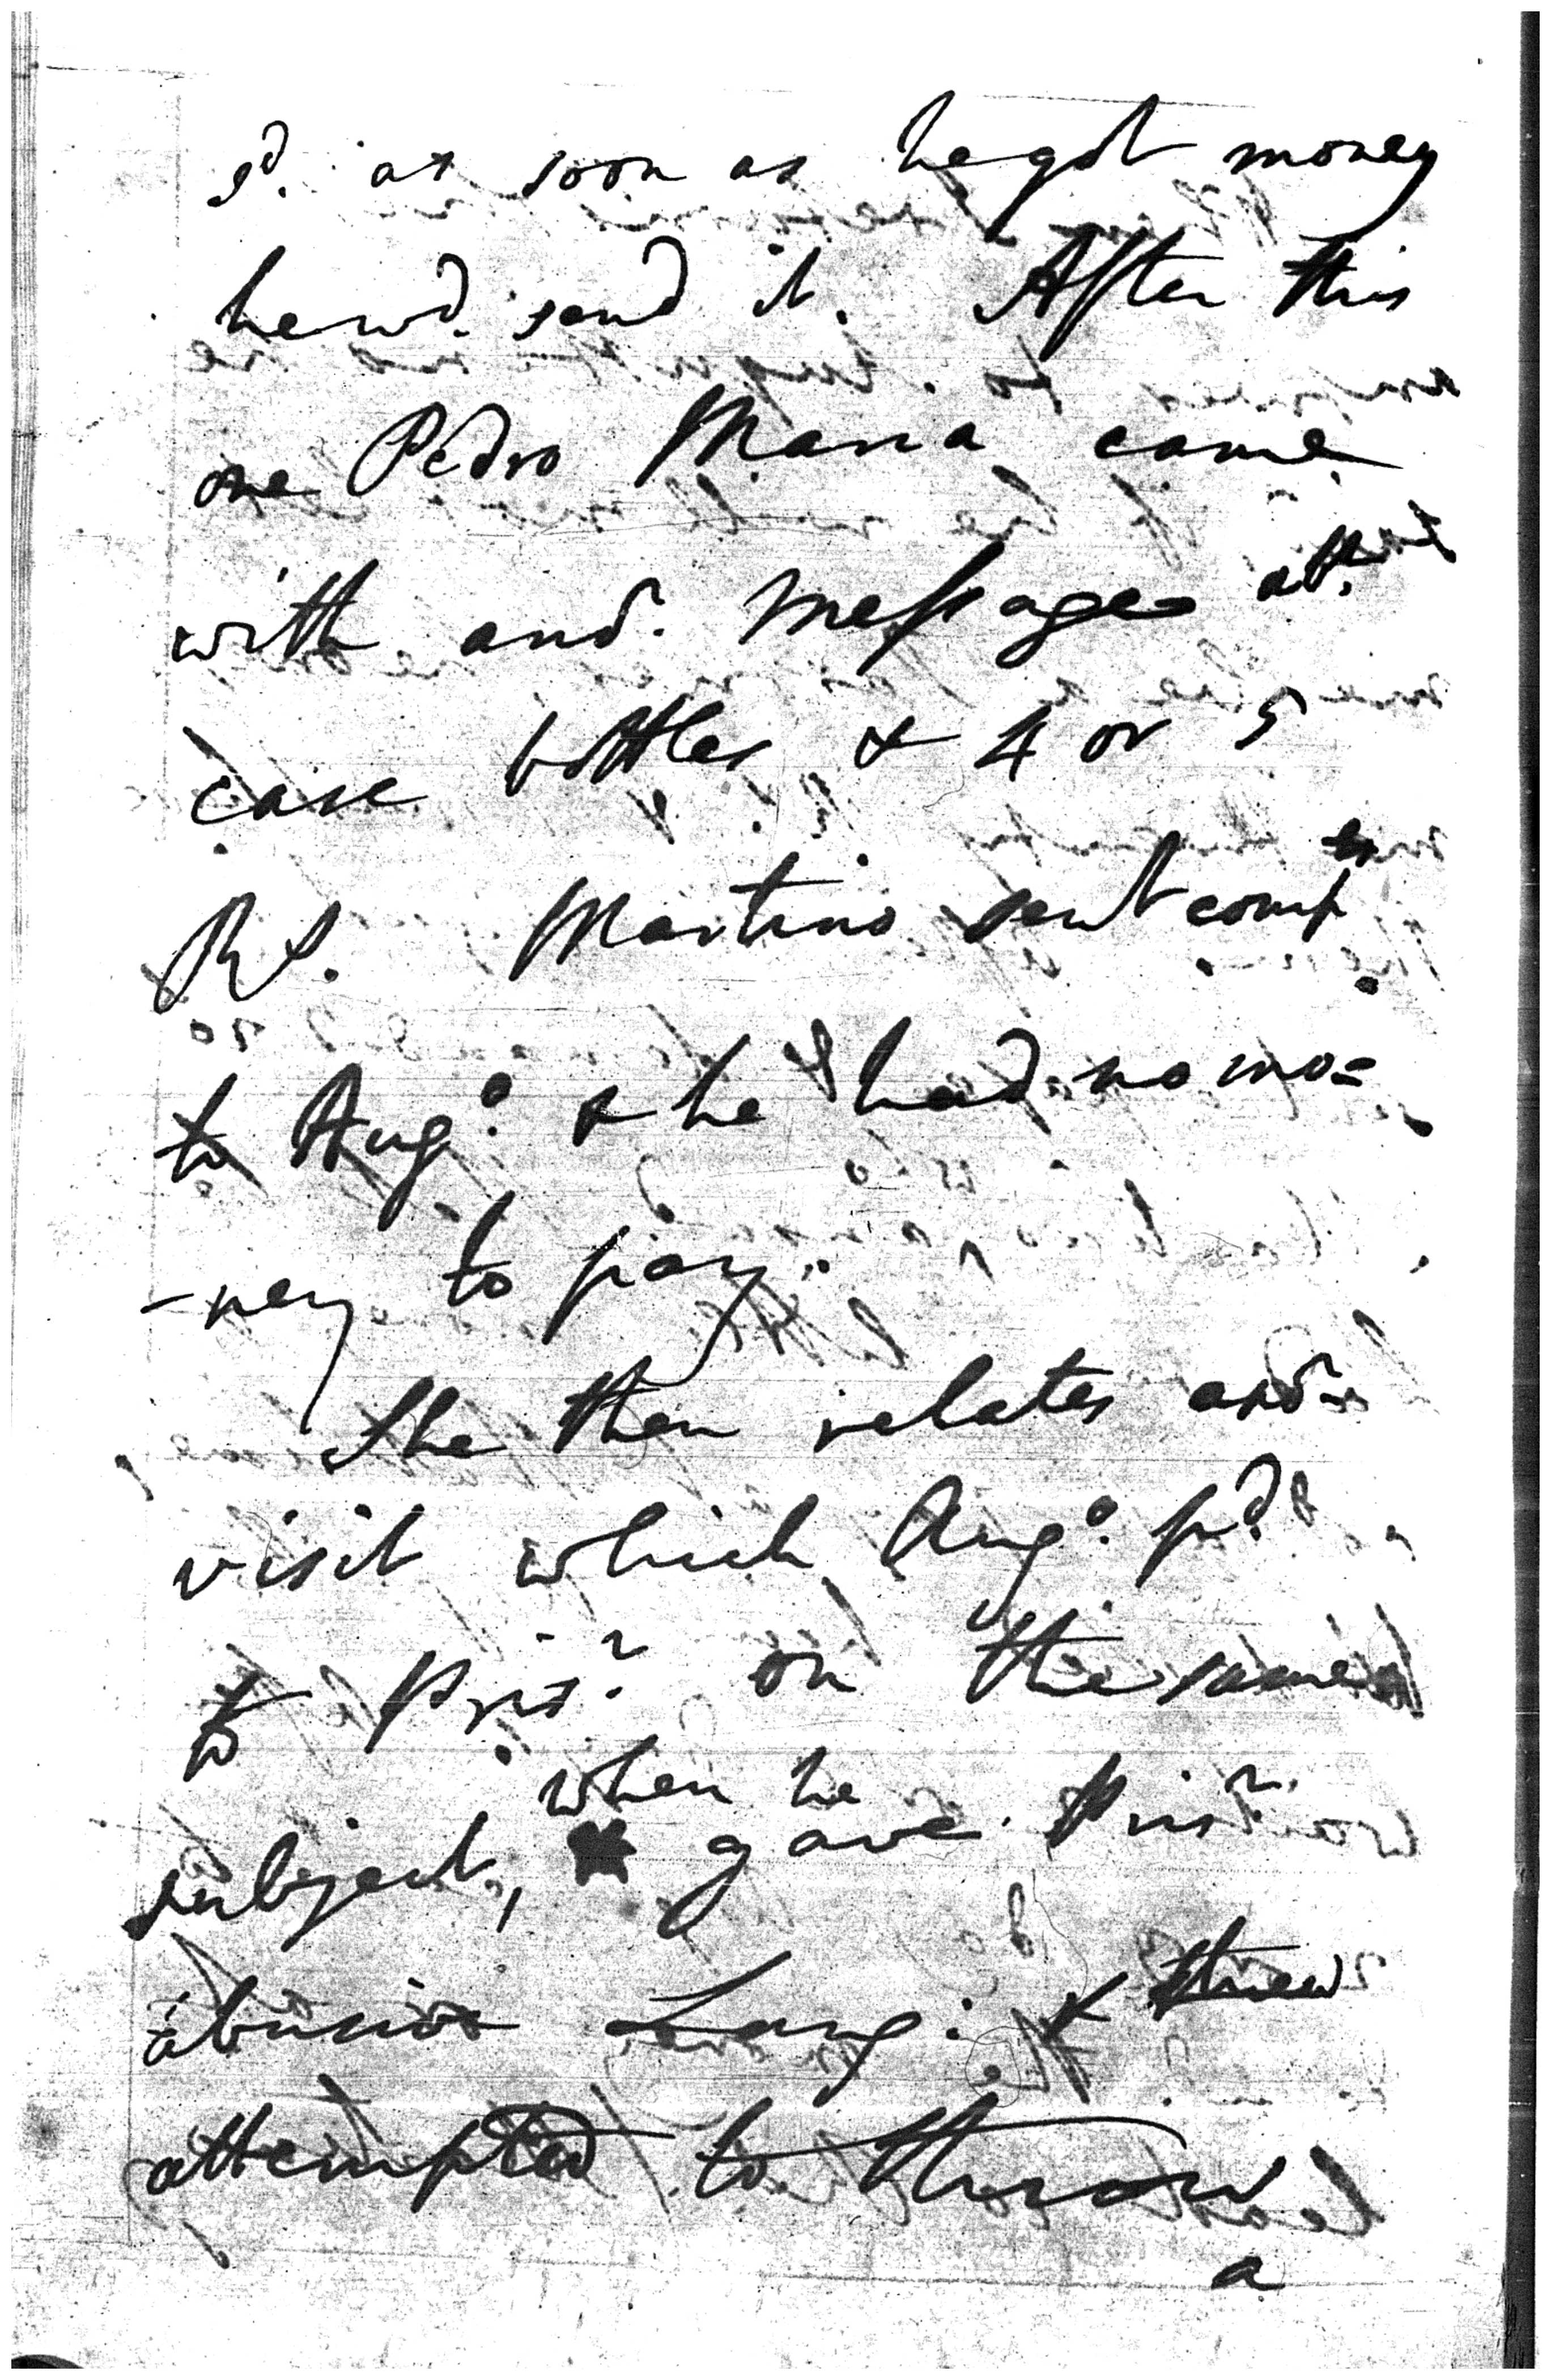 sd. as soon as he got money
he wd. send it. After this
one Pedro Maria came
with anor. message abt.
case bottles & 4 or 5
Rs. Martino sent compts
to Augo. & he had no mo=
-ney to pay.
She then relates anor.
visit which Augo. pd.
to Prisr. on the same
when he
subject, gave Prisr.
abusive Lang: & threw
attempted to throw
a